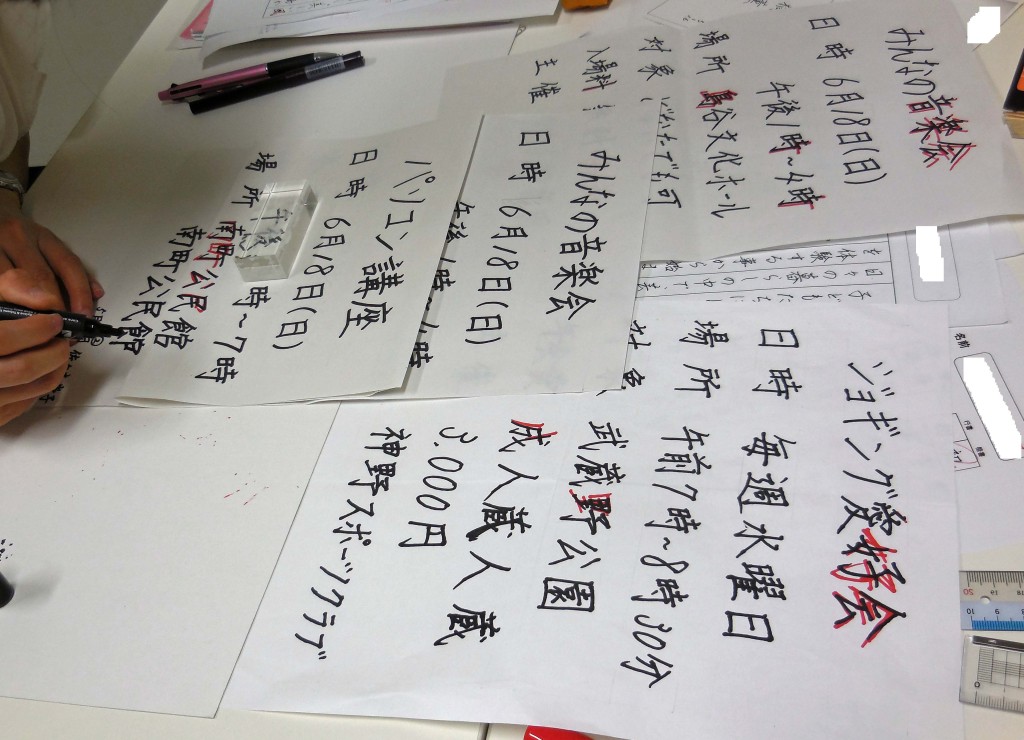 みんなの音楽会
日時 6月18日(日)
午後1時~4時
場所 島谷文化ホール
対象 どなたでも可
入場料
主催
みんなの音楽会
日時 6月18日(日)
午後1時~4時
パソコン講座
日時 6月18日(日)
時~7時
場所 南町公民館
南町公民館
館
ジョギング愛好会
日時 毎週水曜日
午前7時~8時30分
場所 武蔵野公園
対象
成人蔵人蔵
3,000円
神野スポーツクラブ
子どもたちに
日々の暮らしの中で、
を体験する事から
名前